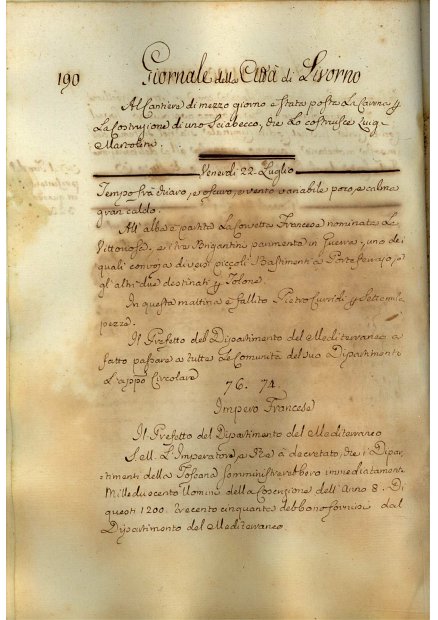 190 Giornale della Città di Livorno
Al Cantiere di mezzo giorno è stata posta La Carena p
La Costruzione di uno Sciabecco, che Lo costruisce Luig
Martolini
Venerdì 22. Luglio
Tempo frà chiaro, e oscuro, e vento variabile poco, e calma
gran caldo.
All' alba è partita La Corvetta Francese nominata Le
Vittoriosa, e tre Brigantini parimente in Guerra, uno de
quali convoja diversi piccoli Bastimenti a Porto ferrajo, e
gl' altri due destinati p Tolone.
In questa mattina è fallito Pietro p Sette mila
pezze.
Il Prefetto del Dipartimento del Mediterraneo a
fatto passare a tutte Le Comunità del suo Dipartimento
L' appo Circolare
76. 74.
Impero Francese
Il Prefetto del Dipartimento del Mediterraneo
S. M. L' Imperatore e Re à decretato, che i Dipar
timenti della Toscana somministrerebbero immediatamente
Mille duecento Uomini della Coscrizione dell' Anno 8. Di
questi 1200. Trecento cinquanta debbono fornirsi dal
Dipartimento del Mediterraneo